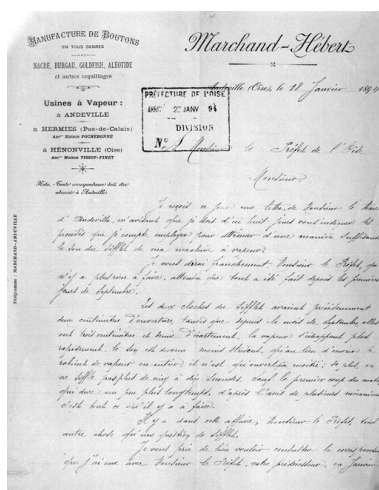 MANUFACTURE DE BOUTONS
EN TOUS GENRES
NACRE, BURGAU, GOLDFISH, ALÉOTIDE
et autres coquillages
Usines à Vapeur :
à ANDEVILLE
à HERMIES (Pas-de-Calais)
Ancne Maison POCHEBONNE
à HÉNONVILLE (Oise)
Ancne Maison TISSOT-FINET
Nota. Toute correspondance doit être
adressée à Andeville
Télégrammes : MARCHAND-ANDEVILLE
Marchand-Hébert
Andeville (Oise), le 18 Janvier 1894
PRÉFECTURE DE L'OISE
20 JANV 94
DIVISION
No
Monsieur le Préfet de l'Oise
Monsieur
Je reçois ce jour une lettre de Monsieur le Maire
d'Andeville, m'avisant que je dois d'ici huit jours vous indiquer les
procédés que je compte employer pour atténuer d'une manière suffisante
le son du sifflet de ma machine à vapeur.
Je vous dirai franchement Monsieur le Préfet, qu'
il n'y a plus rien à faire, attendu que tout a été fait depuis les premiers
jours de Septembre.
Les deux cloches du sifflet avaient précédemment
deux centimètres d'ouverture, tandis que depuis le mois de Septembre elles
ont trois centimètres et demi d'écartement, la vapeur s'échappant plus
rapidement, le son est donc moins strident, qu'au lieu d'ouvrir le
robinet de vapeur en entier, il n'est qu'ouvert à moitié ; de plus, on
ne siffle pas plus de cinq à dix secondes, sauf le premier coup du matin
qui dure un peu plus longtemps, d'après l'avis de plusieurs mécaniciens
c'est tout ce qu'il y a à faire.
Il y a dans cette affaire, Monsieur le Préfet, tout
autre chose qu'une question de sifflet.
Je vous prie de bien vouloir consulter la correspondance
que j'ai eue avec Monsieur le Préfet, votre prédécesseur, en Janvier